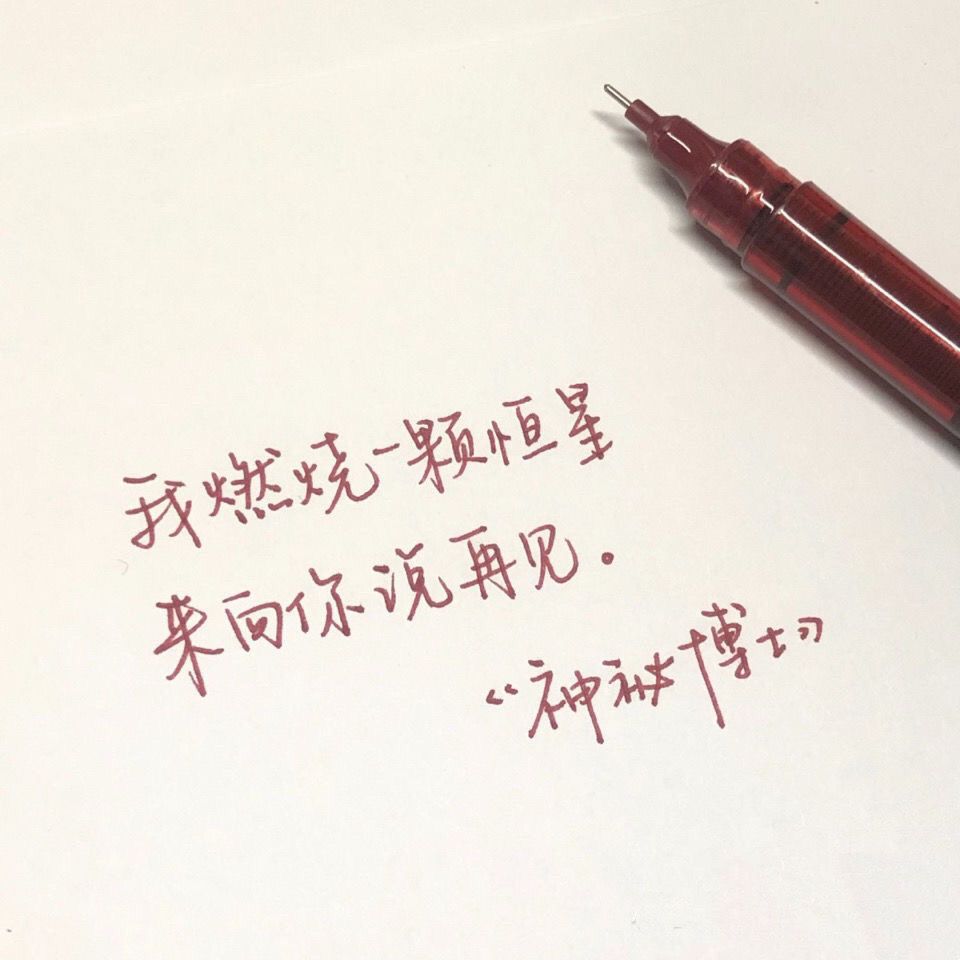 我燃烧一颗恒星
来向你说再见。
《神秘博士》